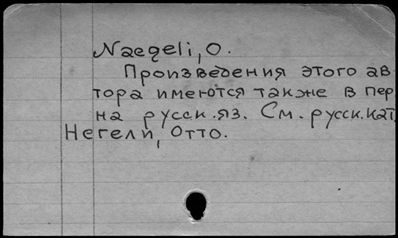 Naegeli, O.
Произведения этого ав-
тора имеются также в пер
на русск.яз. См. русск.кат
Негели, Отто.